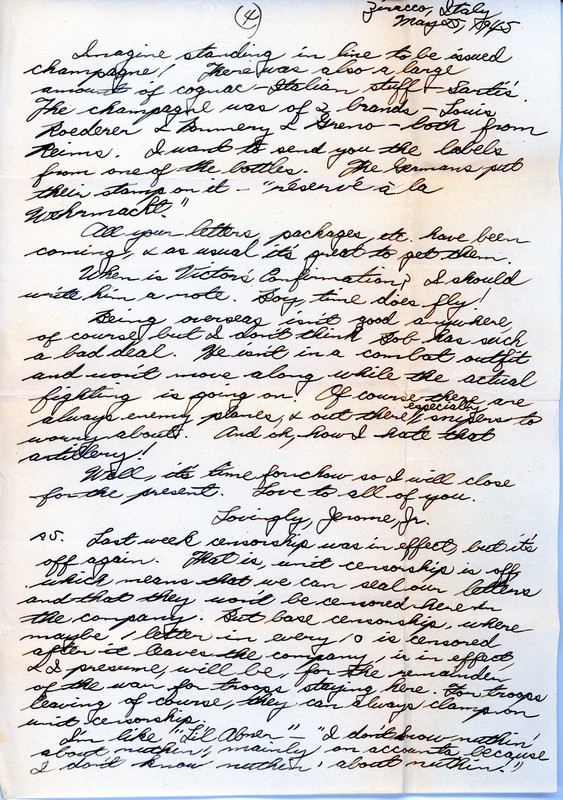 (4)
Ziracco, Italy
May 25, 1945
Imagine standing in line to be issued
champagne! There was also a large
amount of cognac - Italian stuff - Sarti's.
The champagne was of 2 brands - Louis
Roederer & Pommery & Greno - both from
Reims. I want to send you the labels
from one of the bottles. The Germans put
their stamp on it - "reservé à la
Wehrmacht."
All your letters, packages, etc. have been
coming, & as usual it's great to get them.
When is Victor's Confirmation? I should
write him a note. Boy, time does fly!
Being overseas isn't good anywhere,
of course, but I don't think Bob has such
a bad deal. He isn't in a combat outfit
and won't move along while the actual
fighting is going on. Of course there are
always enemy planes, & out there especially snipers to
worry about. And oh, how I hate that
artillery!
Well, it's time for chow so I will close
for the present. Love to all of you.
Lovingly, Jerome, Jr.
P.S. Last week censorship was in effect, but it's
off again. That is, unit censorship is off,
which means that we can seal our letters
and that they won't be censored here in
the company. But base censorship, where
maybe 1 letter in every 10 is censored
after it leaves the company, is in effect,
& I presume, will be, for the remainder
of the war for troops staying here. For troops
leaving of course, they can always clamp on
unit censorship.
I'm like "Li'l Abner" - "I don't know nuthin'
about nuthin', mainly on accounta because
I don't know nuthin' about nuthin'."